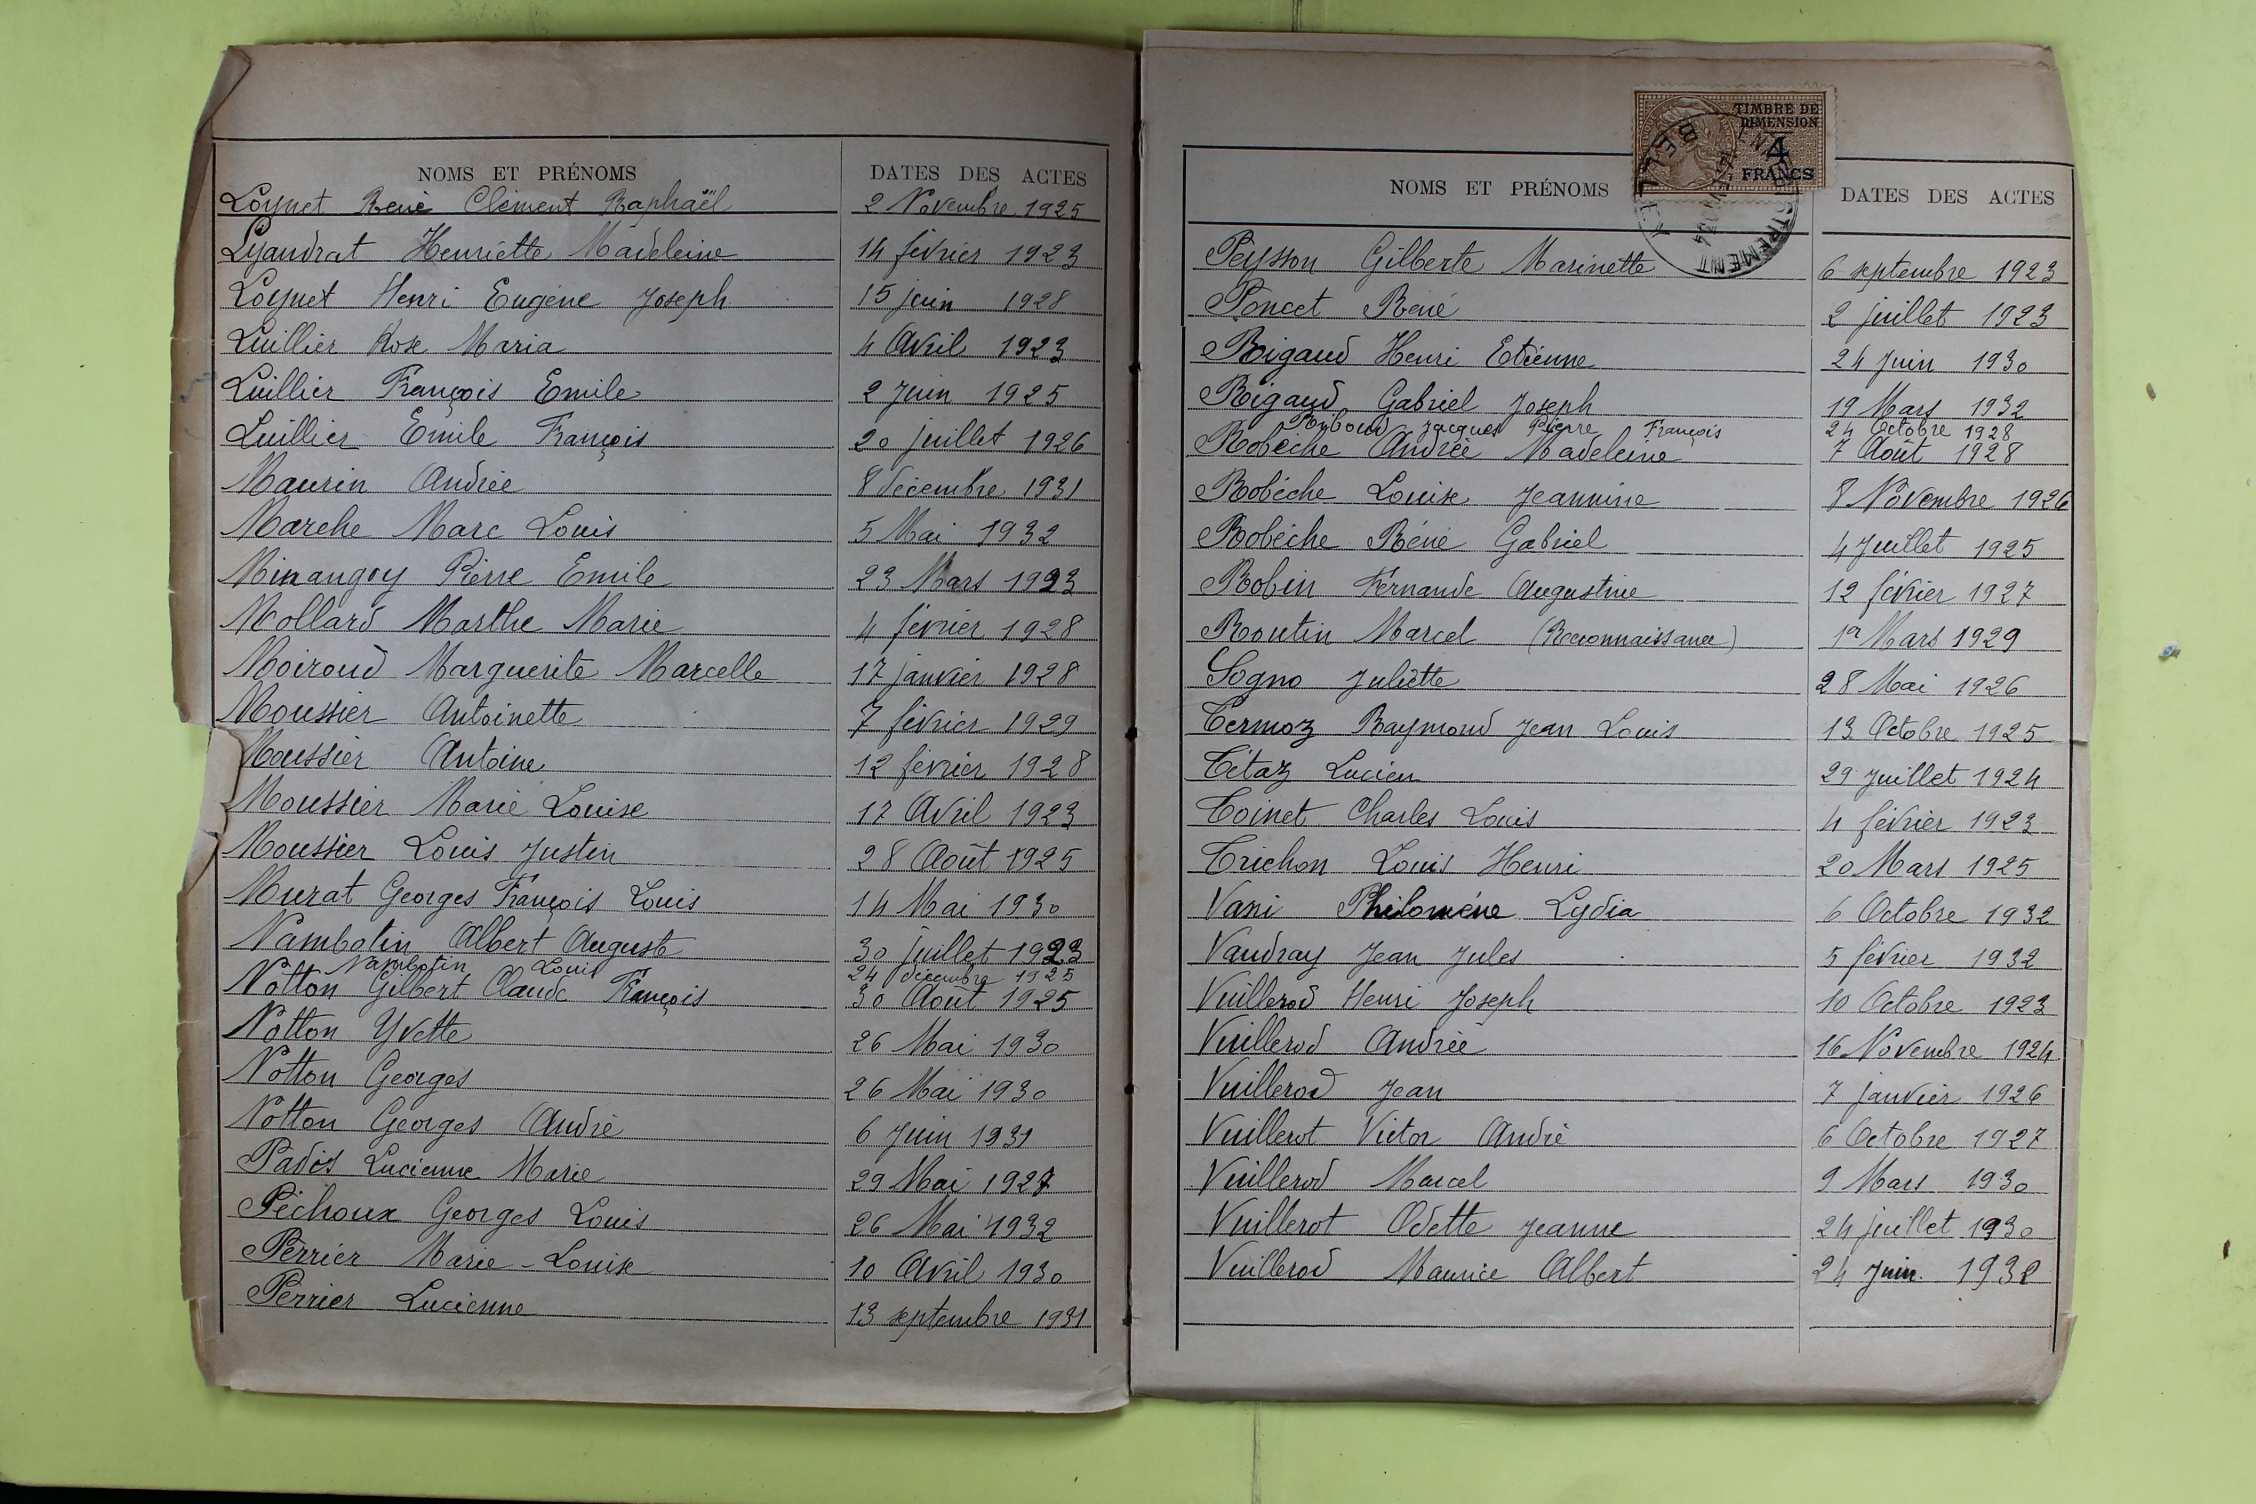 NOMS ET PRÉNOMS DATES DES ACTES
Loynet René Clément Raphaël 2 Novembre 1925
Lyaudrat Henriette Madeleine 14 février 1923
Loynet Henri Eugène Joseph 15 juin 1928
Luillier Rose Maria 4 Avril 1923
Luillier François Emile 2 Juin 1925
Luillier Emile François 20 juillet 1926
Maurin Andrée 8 décembre 1931
Marche Marc Louis 5 Mai 1932
Minangoy Pierre Emile 23 Mars 1923
Mollard Marthe Marie 4 février 1928
Moiroud Marguerite Marcelle 17 janvier 1928
Moussier Antoinette 7 février 1929
Moussier Antoine 12 février 1928
Moussier Marie Louise 17 Avril 1923
Moussier Louis Justin 28 Août 1925
Murat Georges François Louis 14 Mai 1930
Nambotin Albert Auguste 30 juillet 1923
Nambotin Louis 24 décembre 1925
Notton Gilbert Claude François 30 Août 1925
Notton Yvette 26 Mai 1930
Notton Georges 26 Mai 1930
Notton Georges André 6 Juin 1931
Padis Lucienne Marie 29 Mai 1927
Péchoux Georges Louis 26 Mai 1932
Perrier Marie-Louise 10 Avril 1930
Perrier Lucienne 13 septembre 1931
TIMBRE DE
DIMENSION
4
FRANCS
BELLEY
NOMS ET PRÉNOMS DATES DES ACTES
Peysson Gilberte Marinette 6 septembre 1923
Poncet René 2 juillet 1923
Rigaud Henri Etienne 24 Juin 1930
Rigaud Gabriel Joseph 19 Mars 1932
Riboud Jacques Pierre François 24 Octobre 1928
Robèche Andrée Madeleine 7 Août 1928
Robéche Louise Jeannine 8 Novembre 1926
Robéche Réné Gabriel 4 Juillet 1925
Robin Fernande Augustine 12 février 1927
Routin Marcel (Reconnaissance) 1er Mars 1929
Sogno Juliette 28 Mai 1926
Termoz Raymond Jean Louis 13 Octobre 1925
Tétaz Lucien 29 Juillet 1924
Toinet Charles Louis 4 février 1923
Trichon Louis Henri 20 Mars 1925
Vani Philomène Lydia 6 Octobre 1932
Vaudray Jean Jules 5 février 1932
Vuillerod Henri Joseph 10 Octobre 1923
Vuillerod Andrée 16 Novembre 1924
Vuillerod Jean 7 janvier 1926
Vuillerot Victor André 6 Octobre 1927
Vuillerod Marcel 9 Mars 1930
Vuillerot Odette Jeanne 24 juillet 1930
Vuillerod Maurice Albert 24 Juin 1932